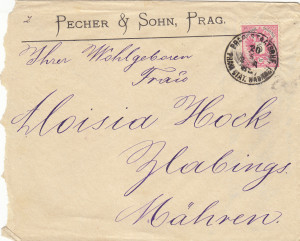 PECHER & SOHN, PRAG.
Ihrer Wohlgeboren
Frau
Aloisia Hock
Zlabings
Mähren.